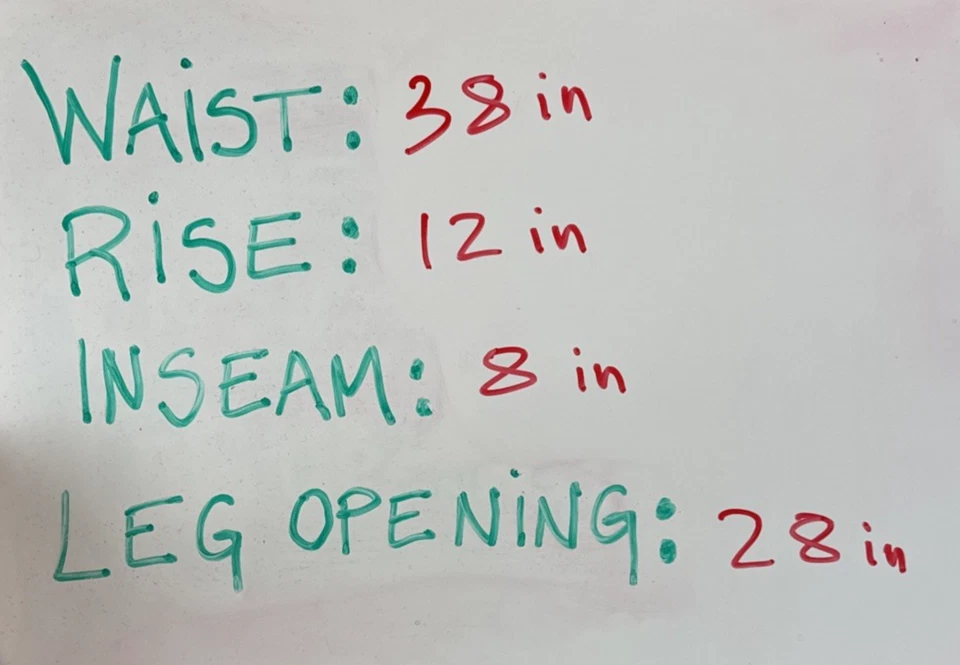 WAiST: 38 in
RiSE: 12 in
INSEAM: 8 in
LEG OPENiNG: 28 in